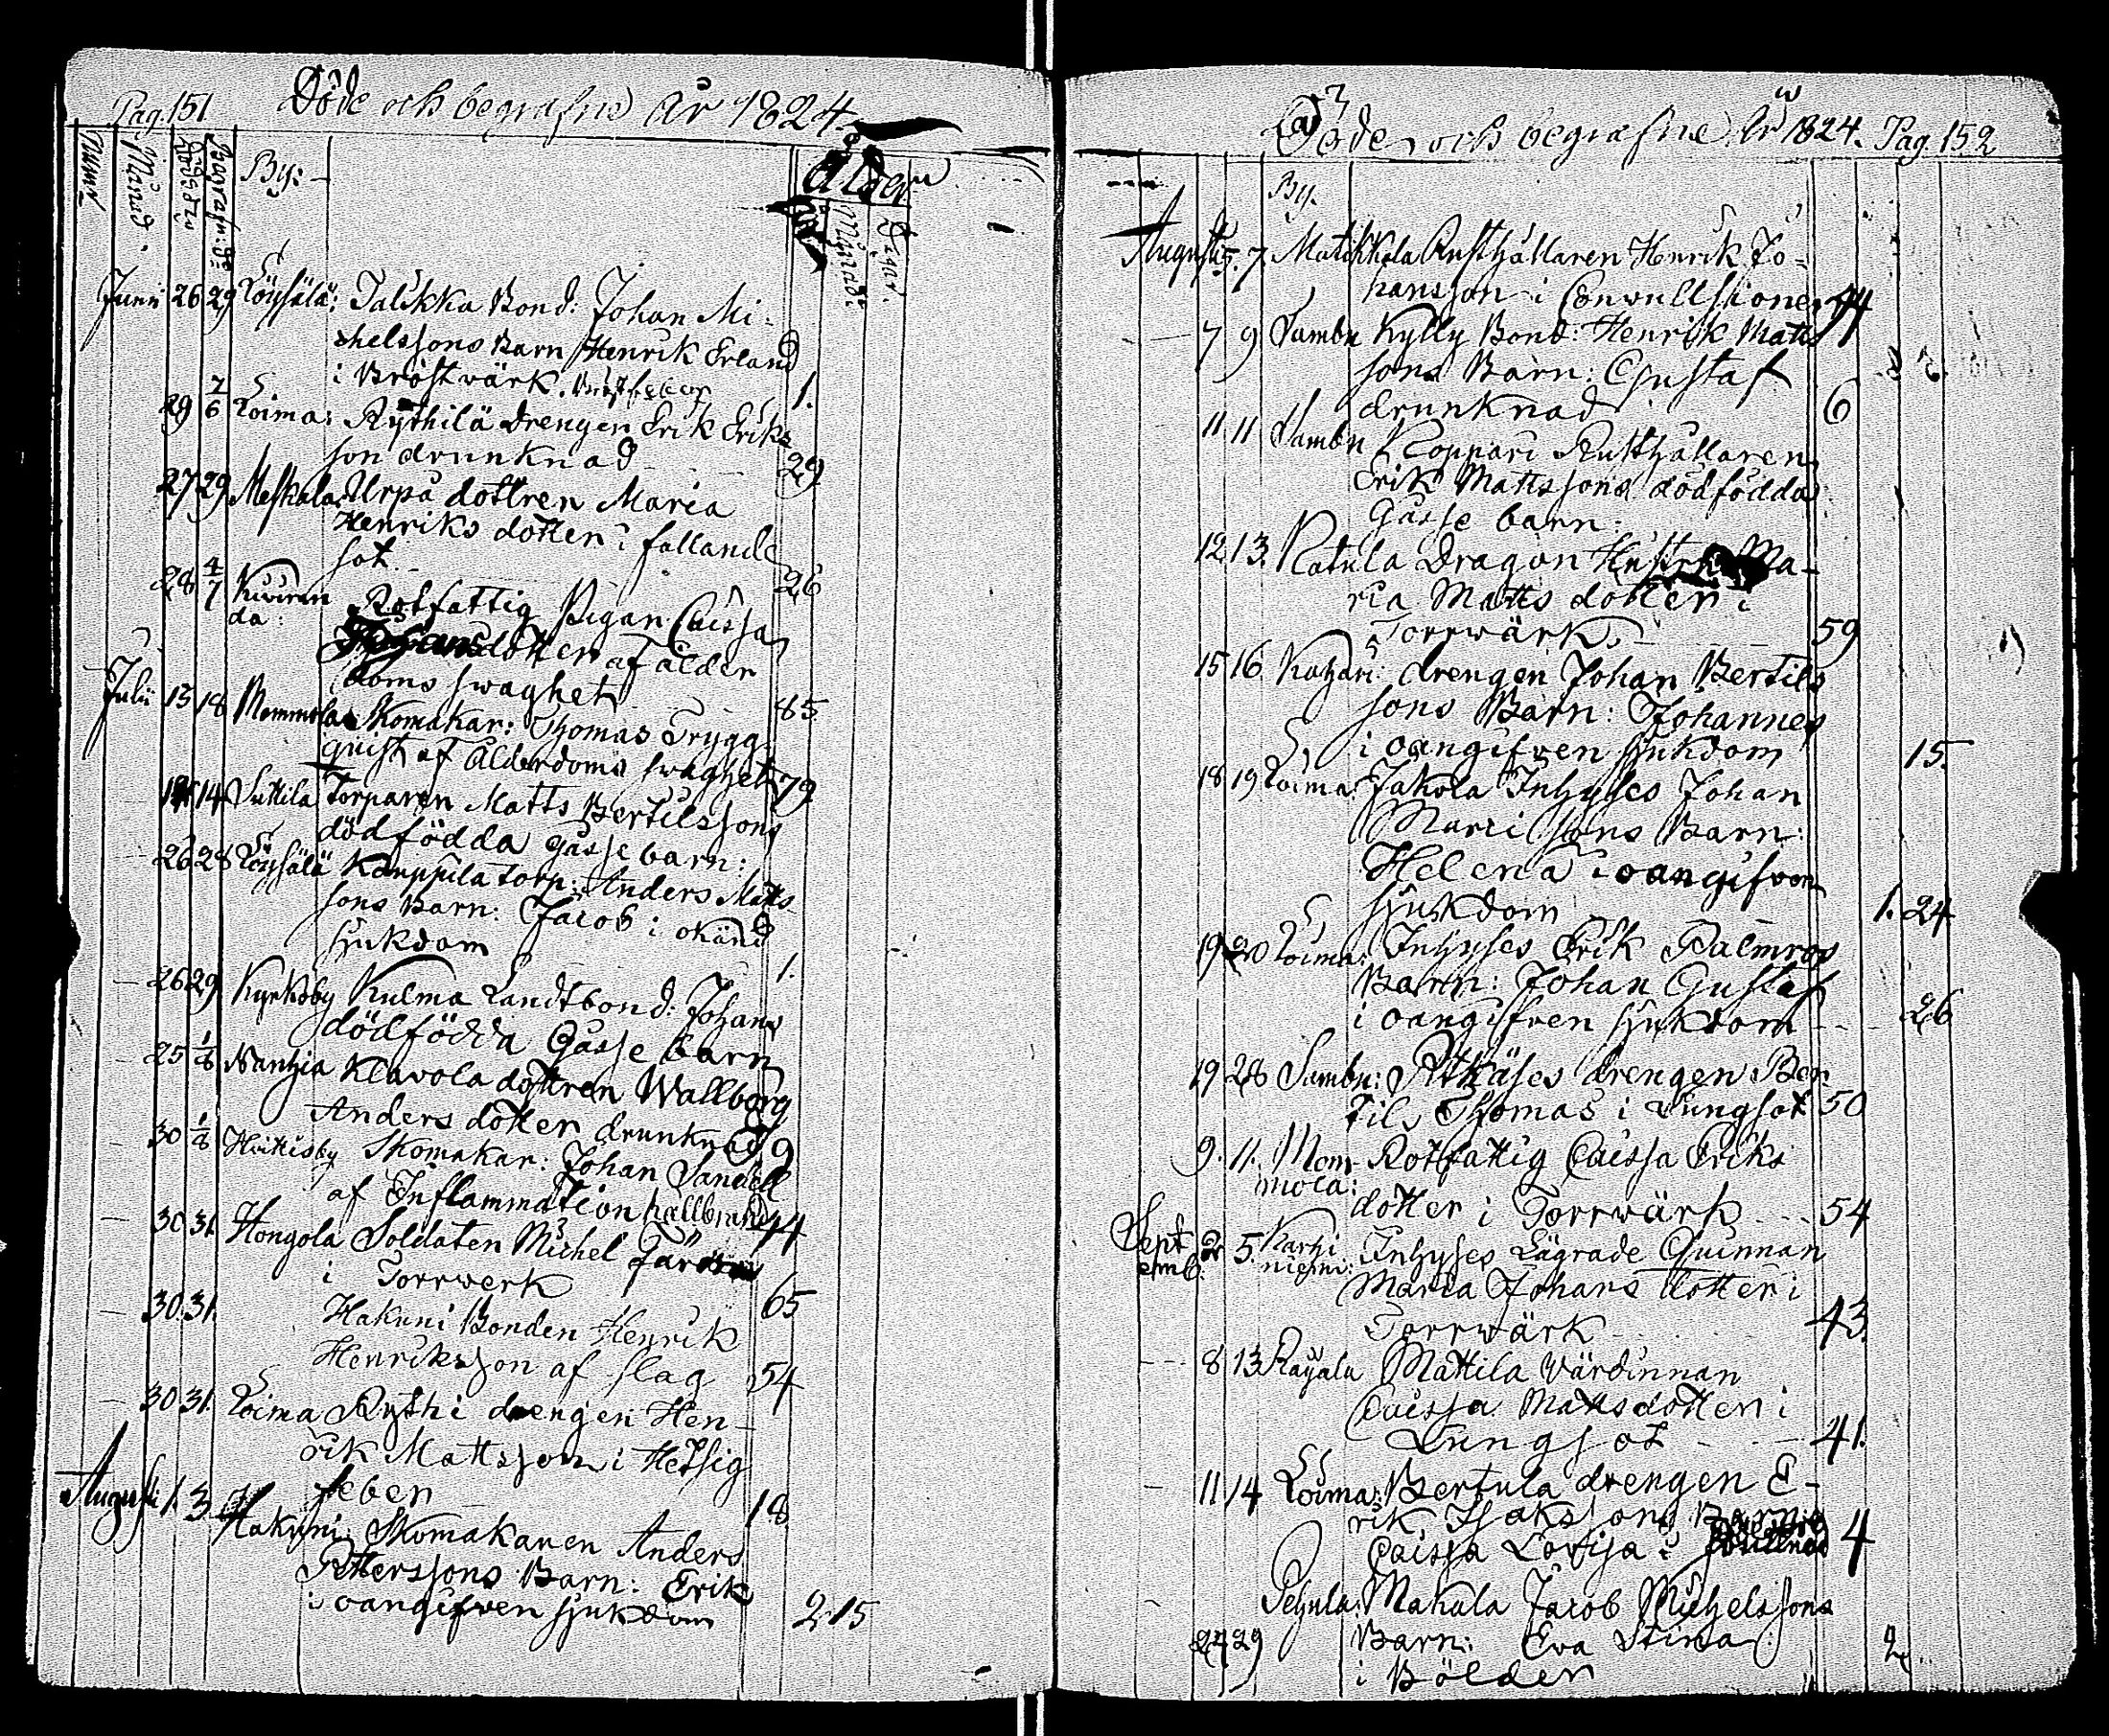 Pag. 151 Döde och begrafne År 1824.
Månad. Döds d: Begrafn: d: By: Ålder
År Månad: Dgar.
Junii 26 29 Löysälä: Talikka Bond: Johan Mi-
chelssons Barn Henrik Erland
i Bröstvärk. 1.
29 2/6 Loima: Rythilä drengen Erik Eriks
son drunknad 29
27 29 Meskala Urpa dottren Maria
Henriks dotter i fallande
sot. 26
28 4/7 Kiviren
da: Rotfattig Pigan Caissa
Johans dotter af ålder
doms swaghet 85.
Julii 15 18 Mommola Skomakar: Thomas Trygg
quist af Ålderdoms swaghet 79.
14 Suttila Torparen Matts Bertilssons
dödfödda gåsse barn:
26 28 Löysälä Kamppila torp: Anders Matts-
sons Barn: Jacob i okänd
sjukdom 1.
26 29 Kyrkoby Kulma Landtbond: Johans
dödfödda Gåsse barn
25 1/8 Nanhia Klavola dottren Wallborg
Anders dotter drunknad 9
30 1/8 Huittisby Skomakar: Johan Sandell
af Inflammation kallbrand 44
30 31. Hongola Soldaten Michel
i Torrwerk 65
30. 31. Hakuni Bonden Henrik
Henriksson af slag 54
30 31. Loima Rythi drengen Hen-
rik Mattsson i Hetsig
feber 18
Augusti 1. 3. Hakuni: Skomakaren Anders
Petterssons Barn: Erik
i oangifven sjukdom 2. 15
Döde och begrafne År 1824. Pag. 152
By.
Augusti 5. 7. Matikkala Rusthållaren Henrik Jo-
hansson i Convullsioner 74
7 9 Sambu Kylly Bond: Henrik Matts
sons Barn: Gustaf
drunknad 6
11 11 Sambu Koppari Rusthållaren
Erik Mattssons dödfödda
Gåsse barn.
12 13. Ratula Dragon Hustru Ma-
ria Matts dotter i
Torrwärk. 59
15 16. Kahari: drengen Johan Bertils
sons Barn: Johannes
i oangifven sjukdom 15.
18 19 Loima: Jakola Inhyses Johan
sons Barn:
Helena i oangifven
sjukdom 1. 24
19 20 Loima: Inhyses Erik Palmros
Barn: Johan Gustaf
i oangifven sjukdom 26
19 28 Sambu: drengen Ber-
til Thomas i Lungsot 50
9. 11. Mom-
mola: Rotfattig Caissa Eriks
dotter i Torrwärk 54
Sept
emb: 2 5. Karhi
niemi: Inhyses Lägrade Quinnan
Maria Johans dotter i
Torrwärk 43.
8 13 Rayala Mattila Wärdinnan
Caissa Mattsdotter i
Lungsot 41.
11 14 Loima: Bertula drengen E-
rik Isakssons Barn
Caissa Lovisa i 4
Pehula: Makala Jacob Michelssons
27 29 Barn: Eva Stina: 2
i Bölder